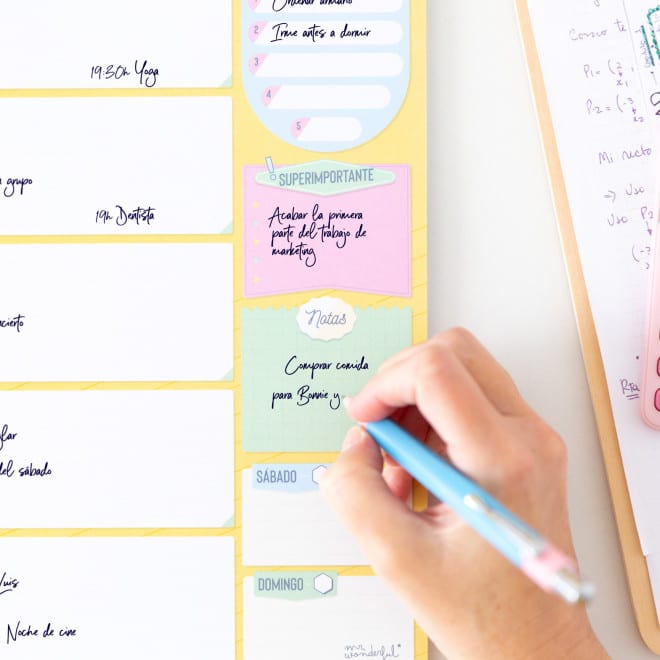 19:30h Yoga
grupo
19h Dentista
del sábado
Noche de cine
Ordenar armario
2 Irme antes a dormir
3
4
5
SUPERIMPORTANTE
Acabar la primera
parte del trabajo de
marketing
Notas
Comprar comida
para Bonnie y
SÁBADO
DOMINGO
mr.
wonderful*
Como te
P1 = (2
x1
P2 = (-3
x2
Mi recto
=> Uso
Uso P2
(-3
Rta